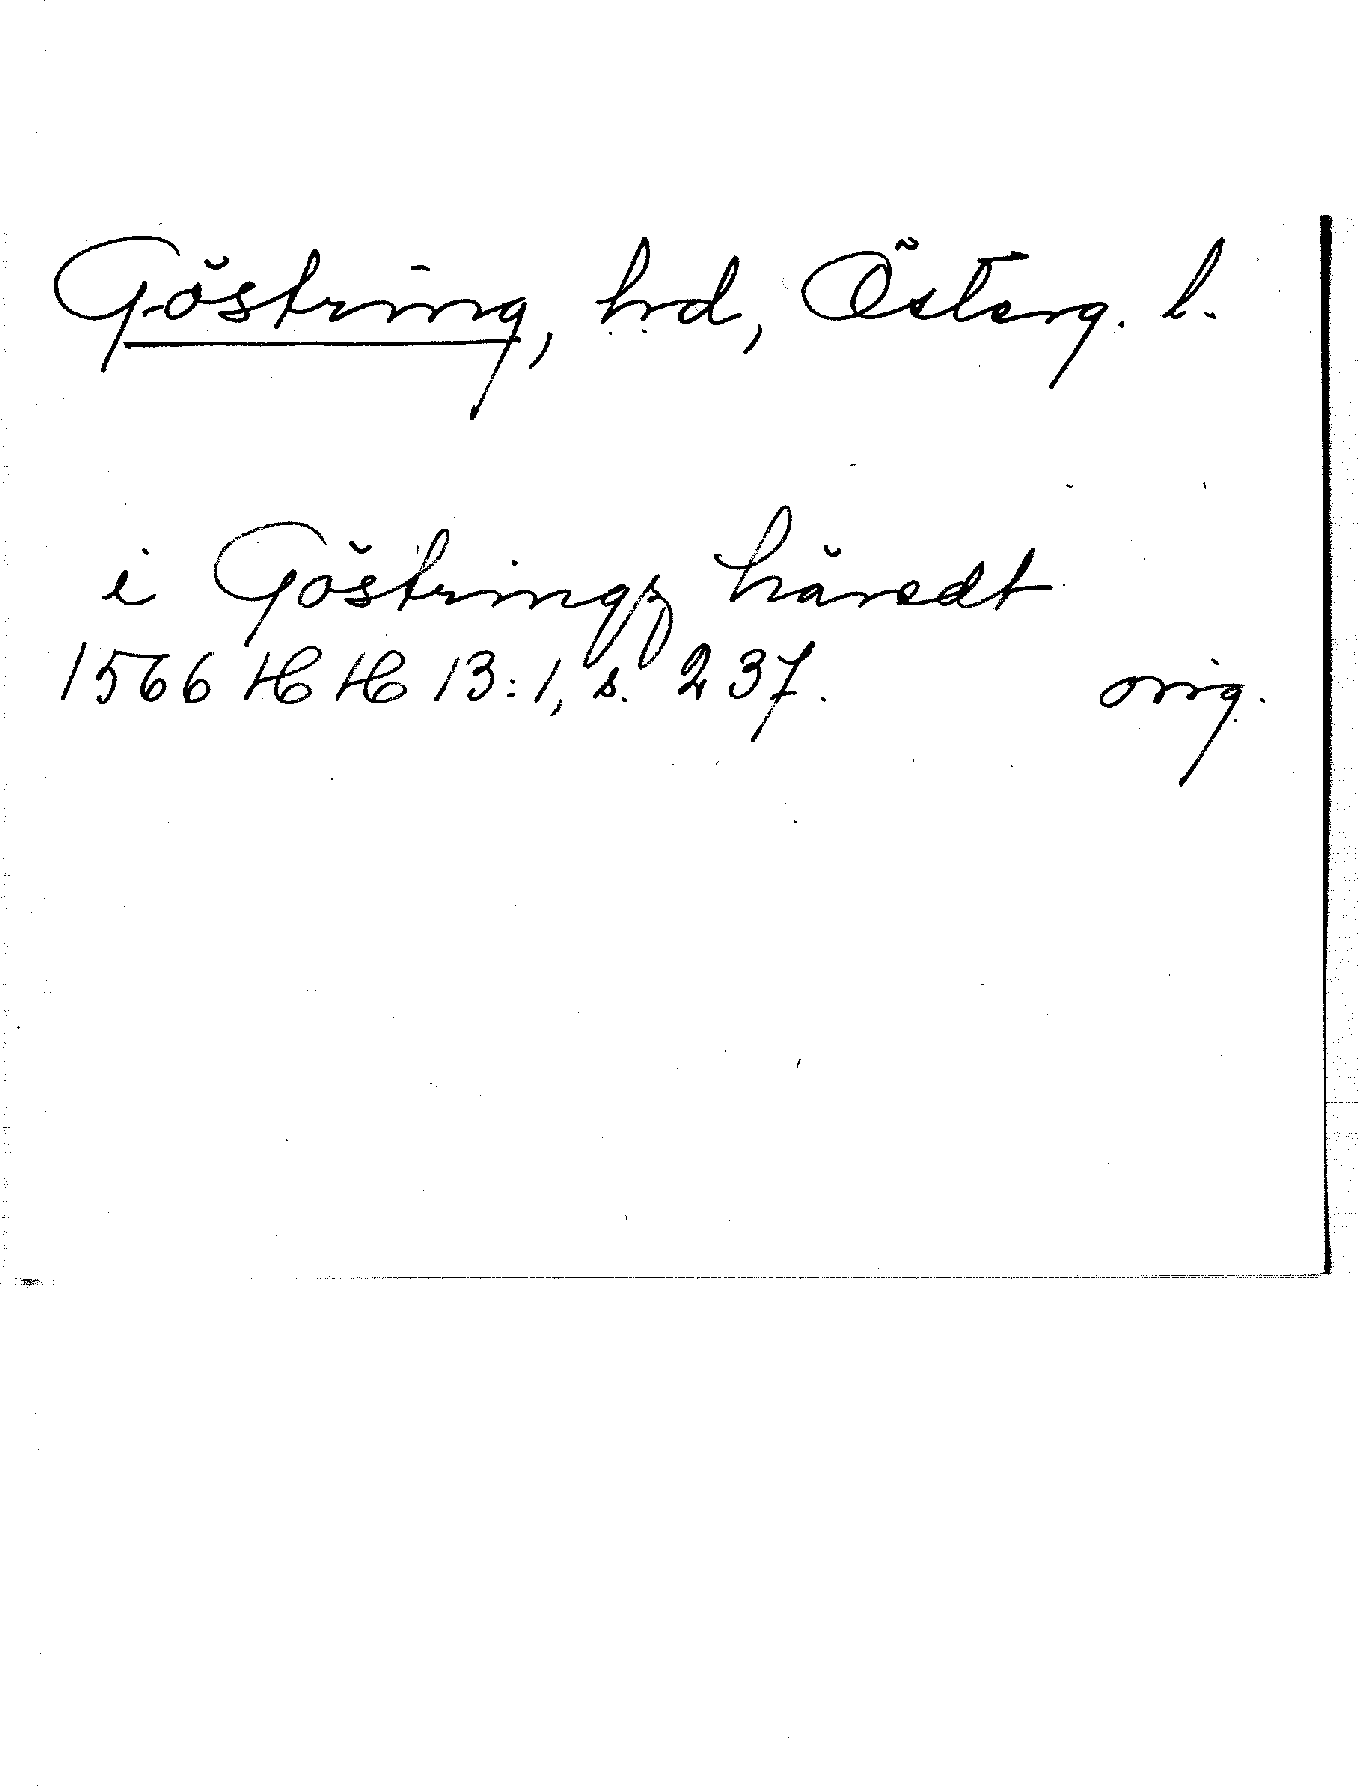 Göstring, hrd, Österg. l.
i Göstringz häredt
1566 HH 13:1, s. 237.
orig.